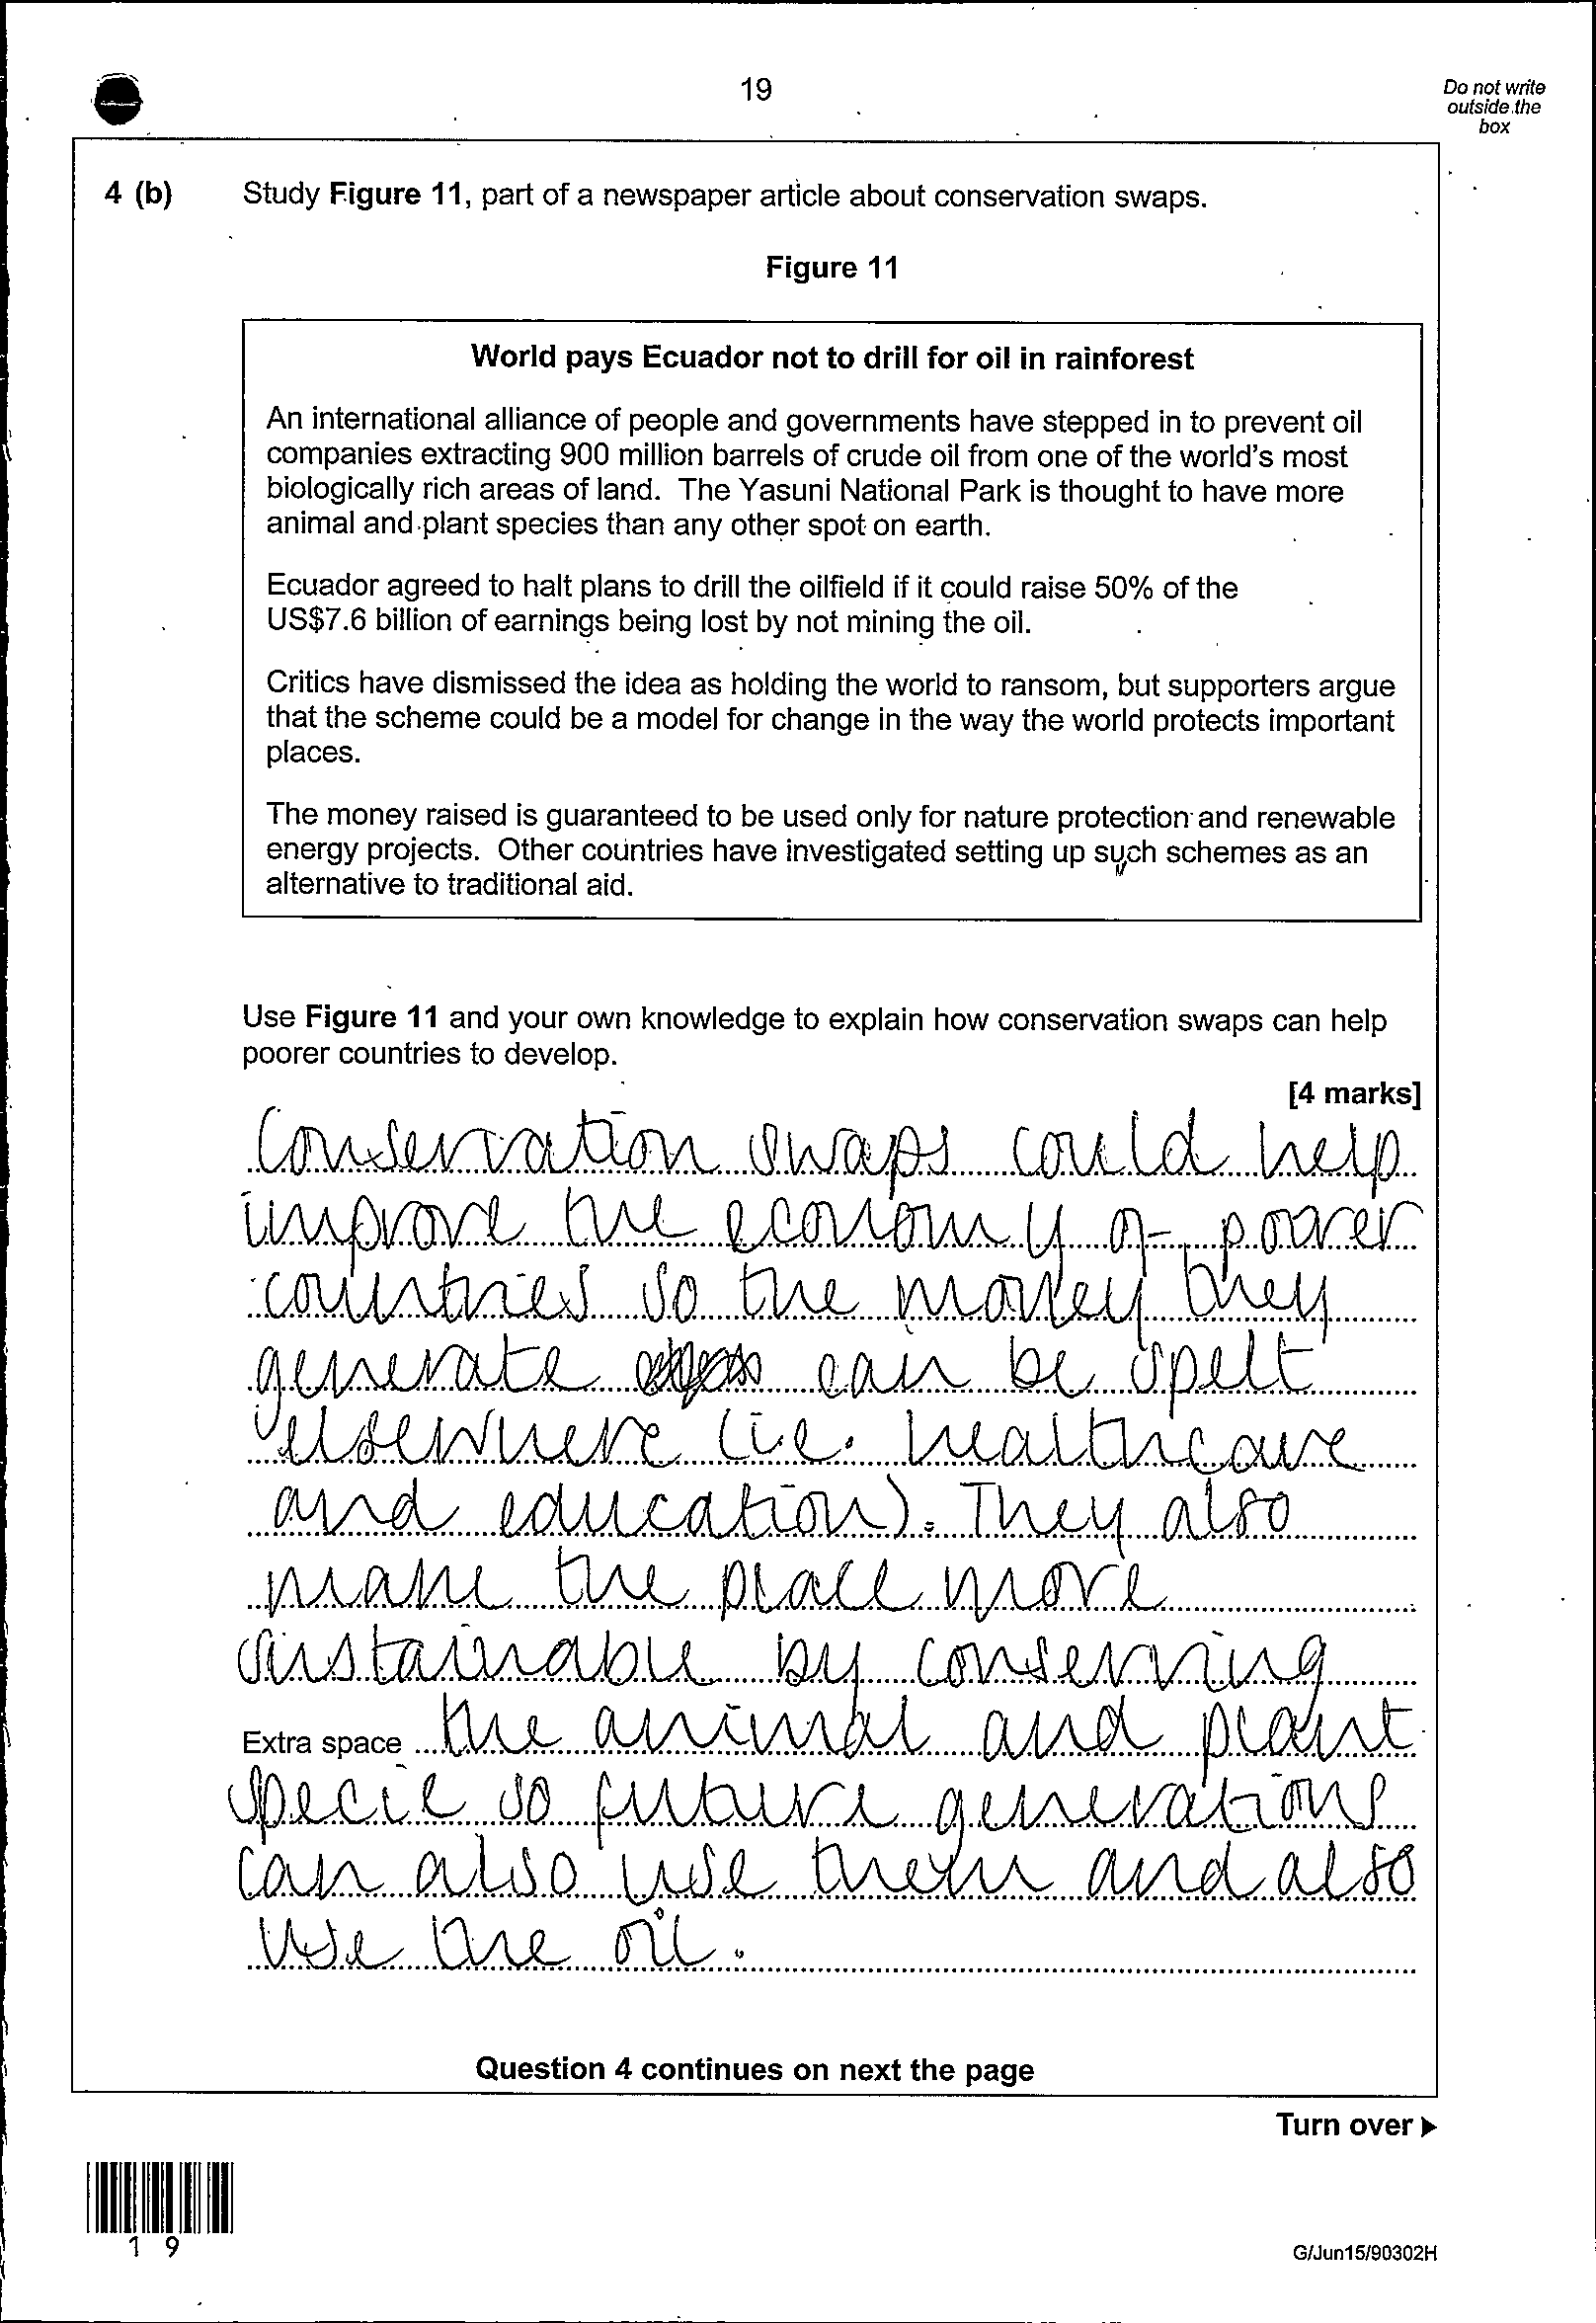 19
Do not write
outside the
box
4 (b) Study Figure 11, part of a newspaper article about conservation swaps.
Figure 11
World pays Ecuador not to drill for oil in rainforest
An international alliance of people and governments have stepped in to prevent oil
companies extracting 900 million barrels of crude oil from one of the world's most
biologically rich areas of land. The Yasuni National Park is thought to have more
animal and plant species than any other spot on earth.
Ecuador agreed to halt plans to drill the oilfield if it could raise 50% of the
US$7.6 billion of earnings being lost by not mining the oil.
Critics have dismissed the idea as holding the world to ransom, but supporters argue
that the scheme could be a model for change in the way the world protects important
places.
The money raised is guaranteed to be used only for nature protection and renewable
energy projects. Other countries have investigated setting up such schemes as an
alternative to traditional aid.
Use Figure 11 and your own knowledge to explain how conservation swaps can help
poorer countries to develop.
[4 marks]
Conservation swaps could help
improve the economy of poorer
countries so the money they
generate can be spelt
elsewhere (i.e. healthcare
and education). They also
make the place more
sustainable by conserving
Extra space the animal and plant
specie so future generations
can also use them and also
use the oil.
Question 4 continues on next the page
Turn over ►
1 9
G/Jun15/90302H